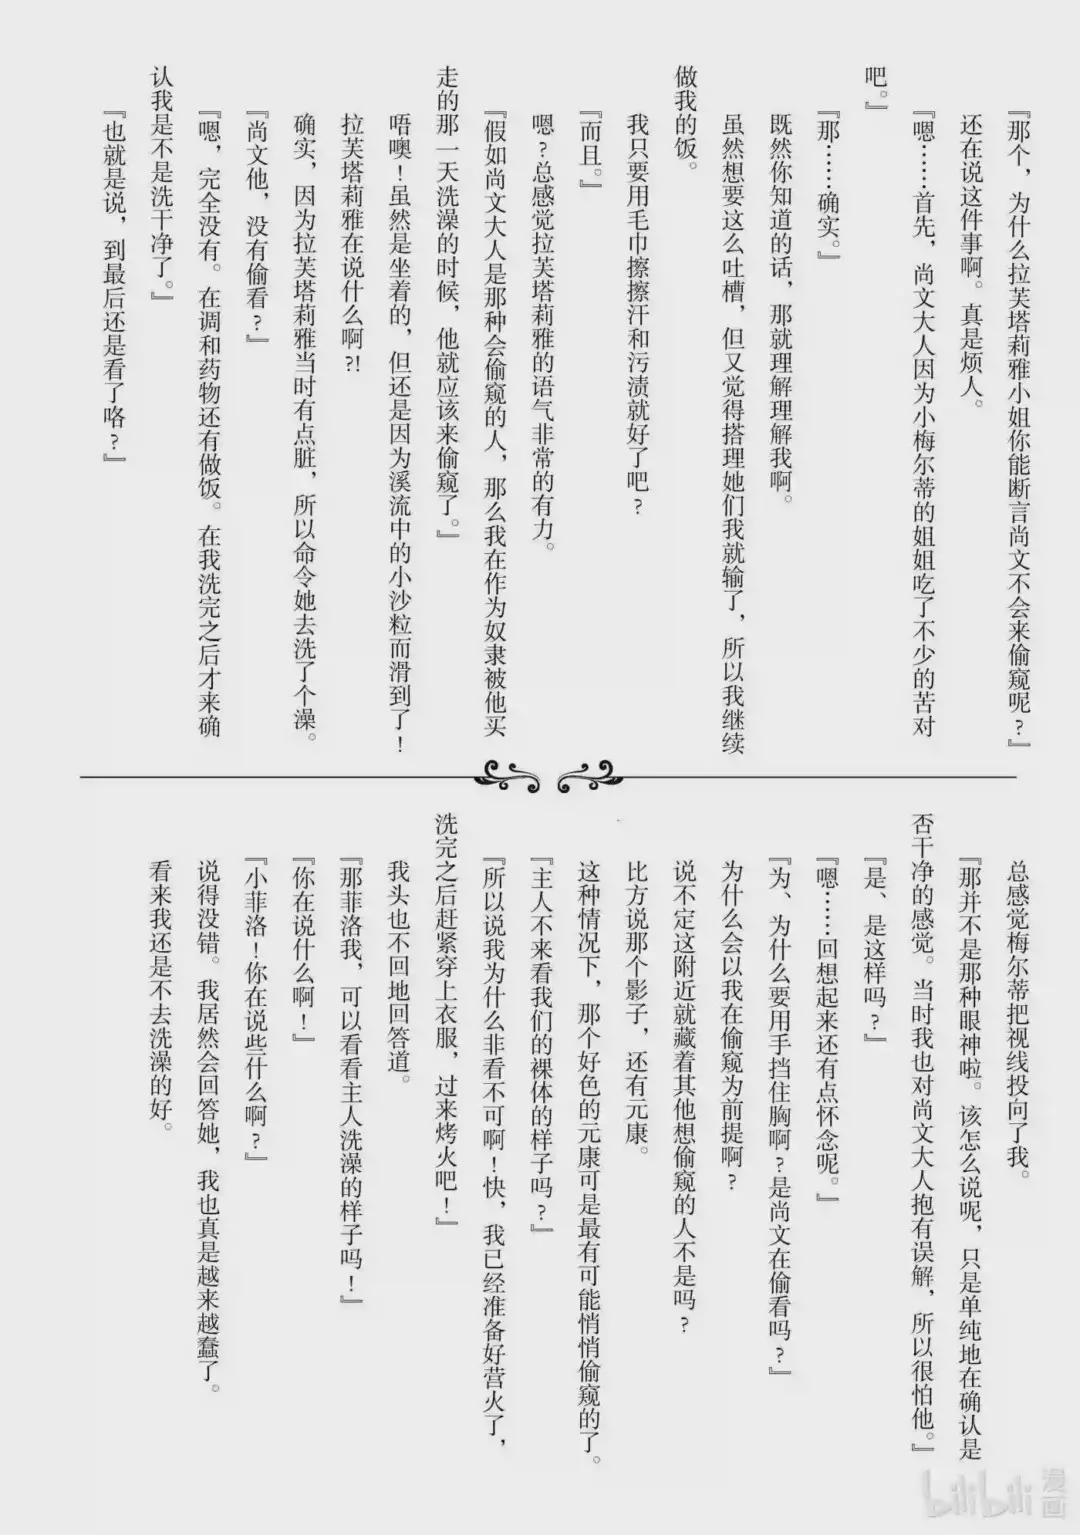 『那个，为什么拉芙塔莉雅小姐你能断言尚文不会来偷窥呢？』
还在说这件事啊。真是烦人。
『嗯……首先，尚文大人因为小梅尔蒂的姐姐吃了不少的苦对
吧。』
『那……确实。』
既然你知道的话，那就理解理解我啊。
虽然想要这么吐槽，但又觉得搭理她们我就输了，所以我继续
做我的饭。
我只要用毛巾擦擦汗和污渍就好了吧？
『而且。』
嗯？总感觉拉芙塔莉雅的语气非常的有力。
『假如尚文大人是那种会偷窥的人，那么我在作为奴隶被他买
走的那一天洗澡的时候，他就应该来偷窥了。』
唔噢！虽然是坐着的，但还是因为溪流中的小沙粒而滑到了！
拉芙塔莉雅在说什么啊?!
确实，因为拉芙塔莉雅当时有点脏，所以命令她去洗了个澡。
『尚文他，没有偷看？』
『嗯，完全没有。在调和药物还有做饭。在我洗完之后才来确
认我是不是洗干净了。』
『也就是说，到最后还是看了咯？』
总感觉梅尔蒂把视线投向了我。
『那并不是那种眼神啦。该怎么说呢，只是单纯地在确认是
否干净的感觉。当时我也对尚文大人抱有误解，所以很怕他。』
『是、是这样吗？』
『嗯……回想起来还有点怀念呢。』
『为、为什么要用手挡住胸啊？是尚文在偷看吗？』
为什么会以我在偷窥为前提啊？
说不定这附近就藏着其他想偷窥的人不是吗？
比方说那个影子，还有元康。
这种情况下，那个好色的元康可是最有可能悄悄偷窥的了。
『主人不来看我们的裸体的样子吗？』
『所以说我为什么非看不可啊！快，我已经准备好营火了，
洗完之后赶紧穿上衣服，过来烤火吧！』
我头也不回地回答道。
『那菲洛我，可以看看主人洗澡的样子吗！』
『你在说什么啊！』
『小菲洛！你在说些什么啊？』
说得没错。我居然会回答她，我也真是越来越蠢了。
看来我还是不去洗澡的好。
bilibili 漫画